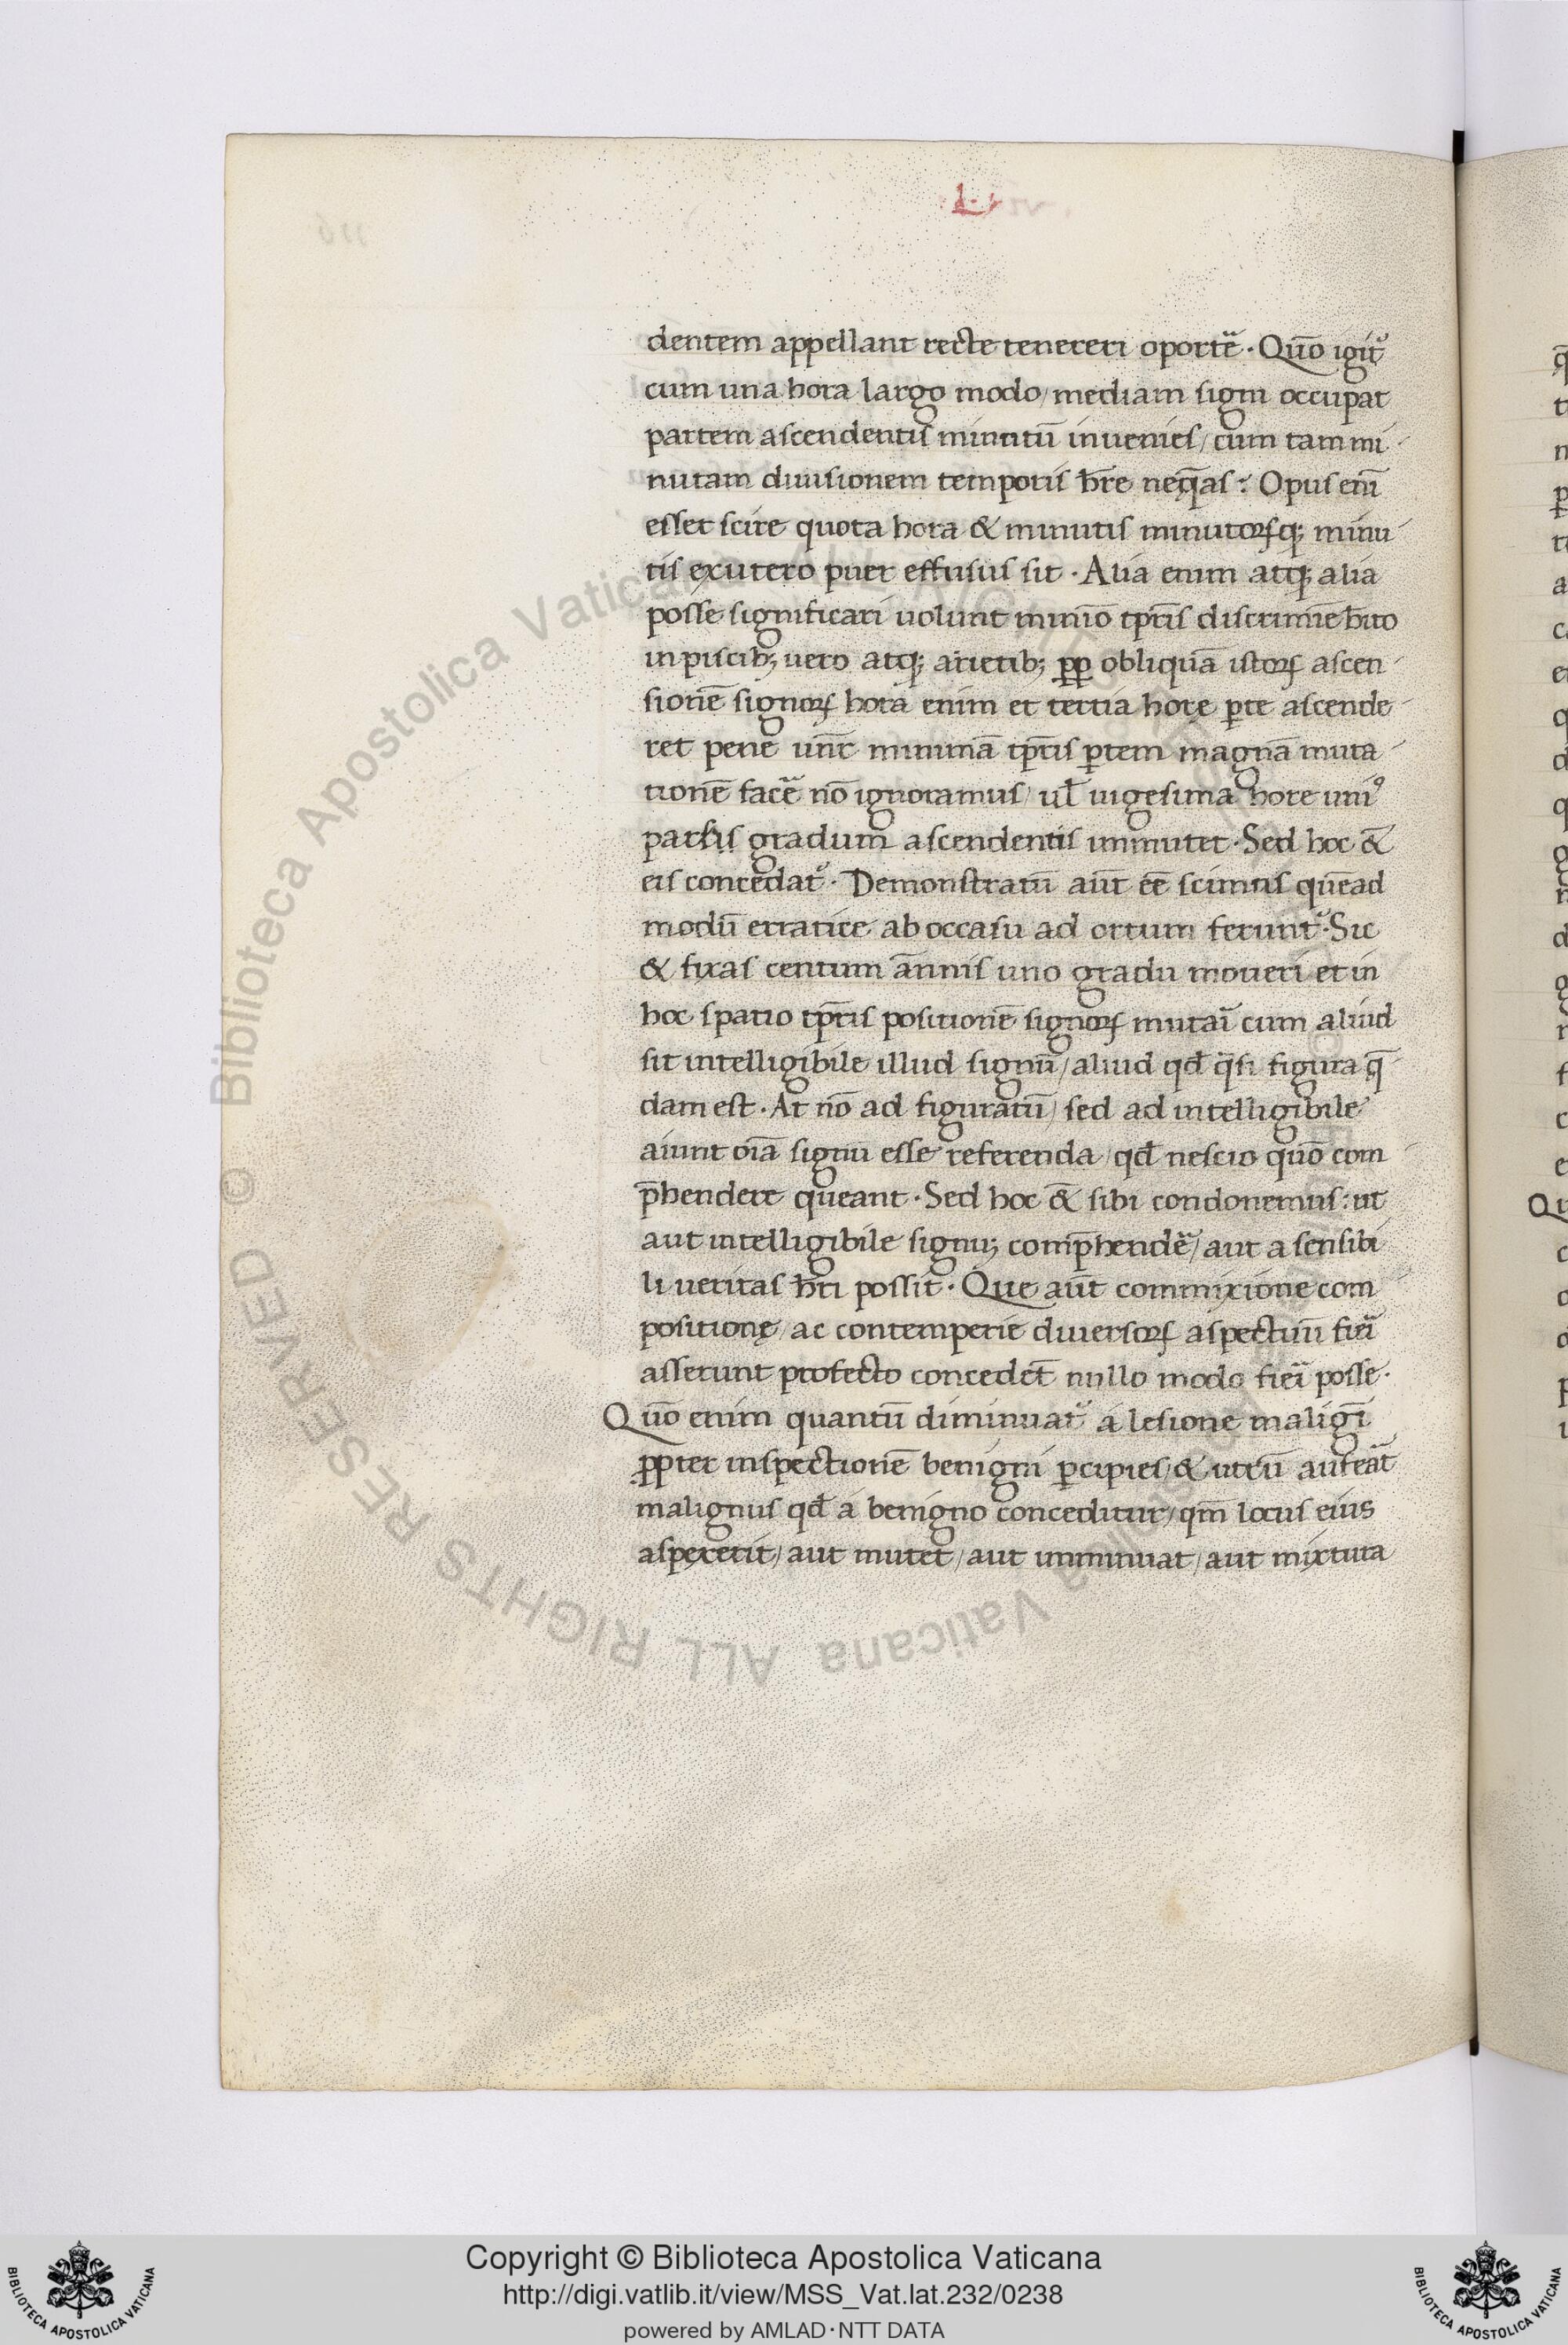 L·
dentem appellant recte tenereri oportꝫ̄ · Quō igit᷒
cum una hora largo modo / mediam signi occupat
partem ascendentis minutū inuenies / cum tam mi
nutam diuisionem temporis h̄re neq̄as? Opus eni᷒̄
esset scire quota hora & minutis minutorꝝq; minu
tis exutero puer effusus sit · Alia enim atq; alia
posse significari uolunt minīo tp̄ris discrimīe h̄ito
in piscib; uero atq; arietib; ꝓp obliquā istorꝝ ascen
sionē signorꝝ hora enim et tertia hore ꝑte ascende
ret pene un̄t minimā tp̄ris ꝑtem magnā muta
tionē facē nō ignoramus / ul̄ uigesima hore uni᷒
partis gradum ascendentis immutet · Sed hoc &̄
eis concedat᷒ · Demonstratū aūt eē scimus quēad
modū erratice ab occasu ad ortum ferunt᷒ · Sic
& fixas centum annis uno gradu moueri et in
hoc spatio tp̄ris positionē signorꝝ mutaī cum aliud
sit intelligibile illud signū / aliud qd̄ q̄si figura q̄
dam est · At nō ad figuratū / sed ad intelligibile
aiunt oīa signū esse referenda / qd̄ nescio quō com
p̄hendere queant · Sed hoc &̄ sibi condonemus : ut
aut intelligibile signū; comp̄hendē / aut a sensibi
li ueritas h̄ri possit · Que aūt commixione com
positionę / ac contemperie diuersorꝝ aspectuū fieī
asserunt profecto concedet̄ nullo modo fieī posse ·
Quō enim quantū diminuat᷒ a lesione maligī
ꝓpter inspectionē benigni ꝑcipies / & utrū auferat̄
malignus qd̄ a benigno conceditur / qm̄ locus eius
aspexerit / aut mutet / aut imminuat / aut mixtura
Copyright © Biblioteca Apostolica Vaticana
http://digi.vatlib.it/view/MSS_Vat.lat.232/0238
powered by AMLAD·NTT DATA
BIBLIOTECA APOSTOLICA VATICANA
BIBLIOTECA APOSTOLICA VATICANA
© Biblioteca Apostolica Vaticana ALL RIGHTS RESERVED